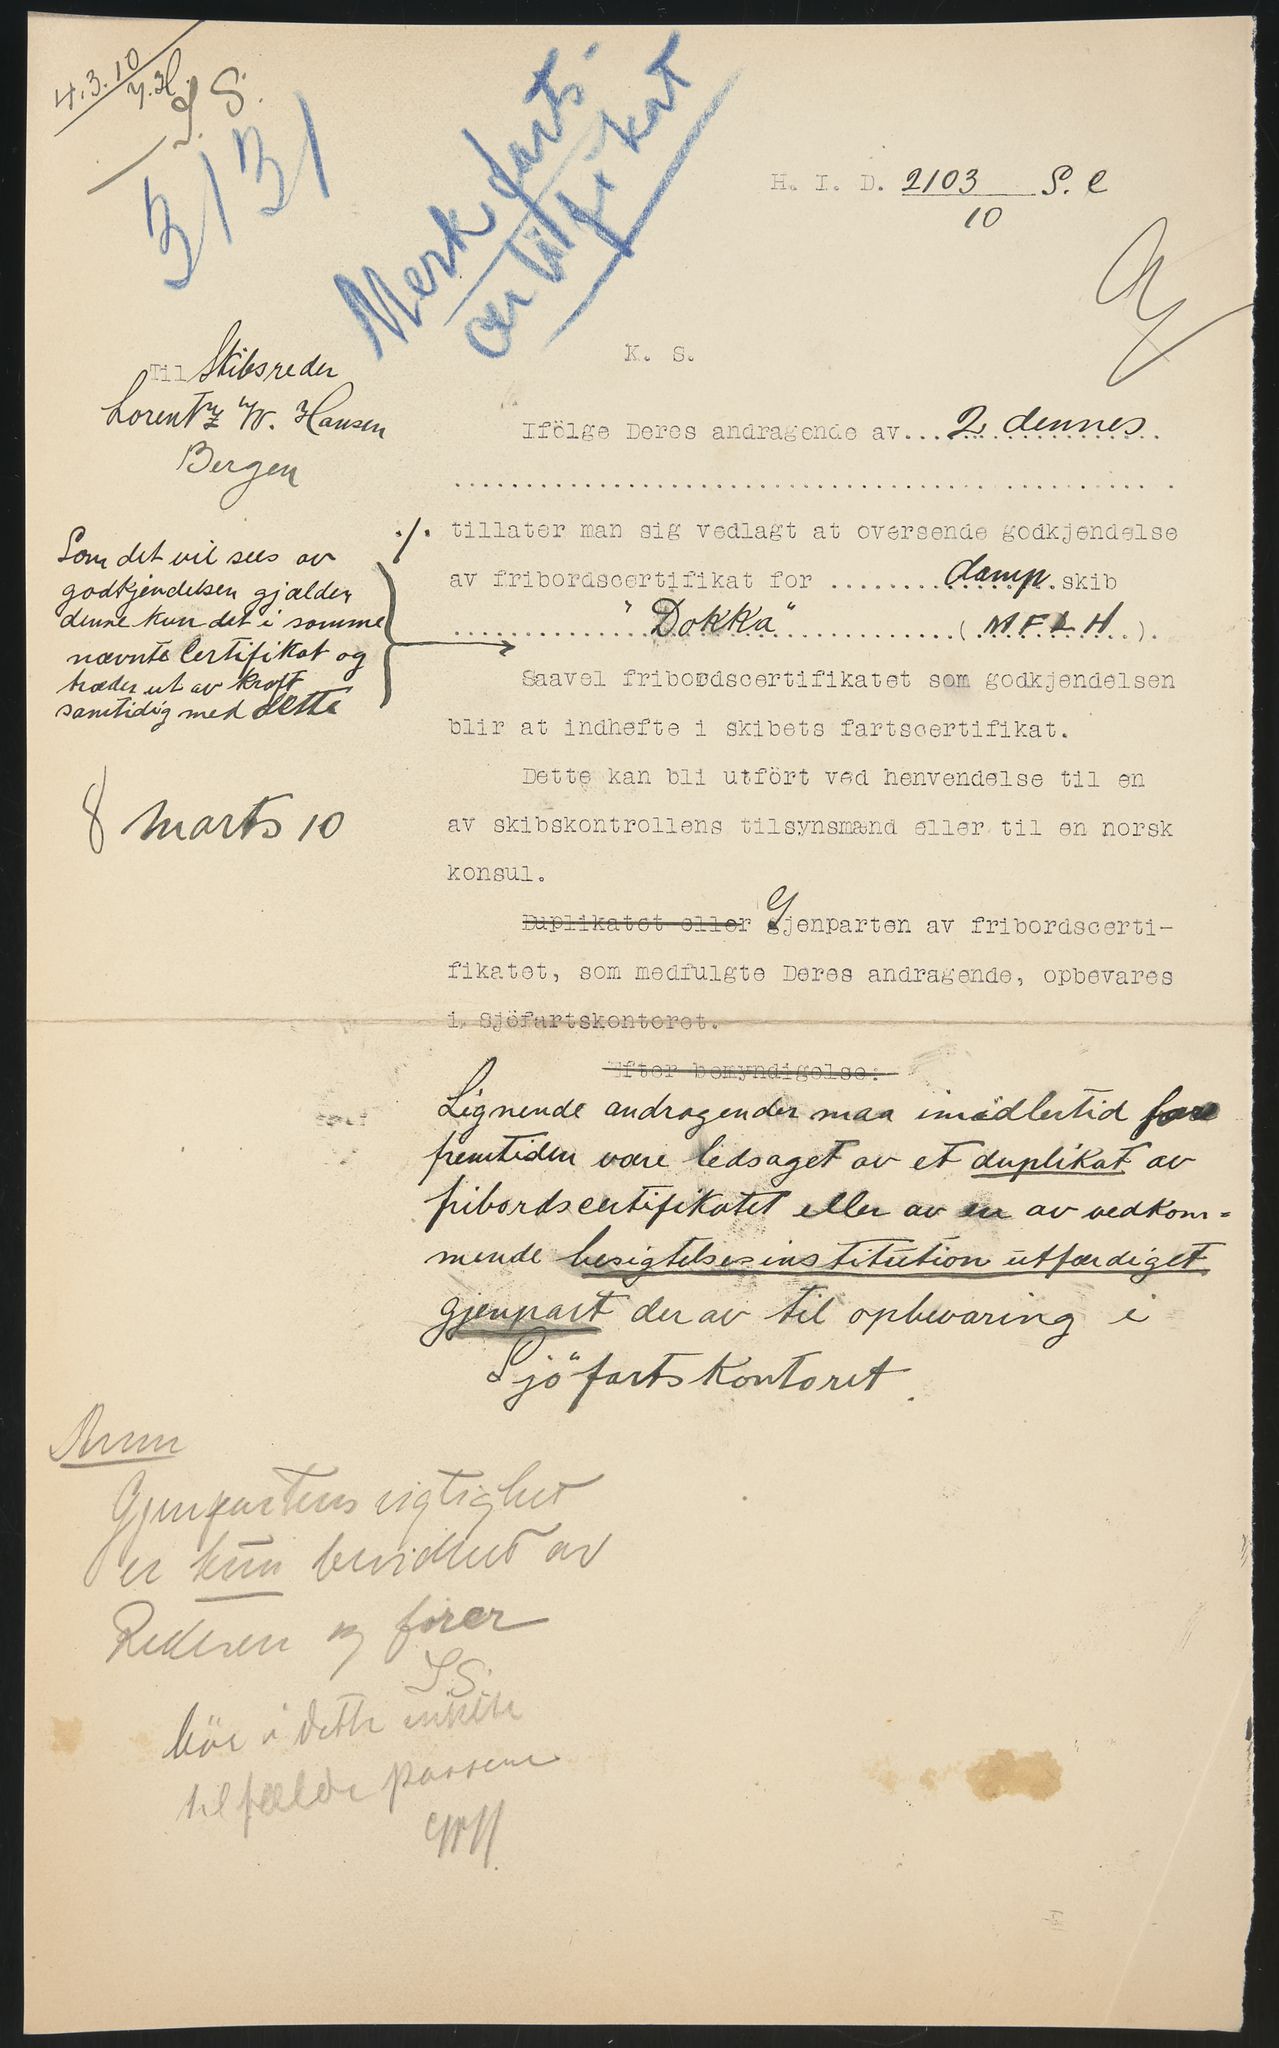 4.3.10
S.
3131
Merk farts-
certifikat
H. I. D. 2103 S. C
10
K. S.
Til Skibsreder
Lorentz W. Hansen
Bergen
Ifölge Deres andragende av... 2 dennes
./. tillater man sig vedlagt at oversende godkjendelse
av fribordscertifikat for ........damp.skib
"Dokka" (MFLH).
Som det vil sees av
godkjendelsen gjælder
denne kun det i samme
nævnte Certifikat og
træder ut av kraft
samtidig med dette
Saavel fribordscertifikatet som godkjendelsen
blir at indhefte i skibets fartscertifikat.
Dette kan bli utfört ved henvendelse til en
av skibskontrollens tilsynsmænd eller til en norsk
konsul.
8 marts 10
Duplikatet eller Gjenparten av fribordscerti-
fikatet, som medfulgte Deres andragende, opbevares
i Sjöfartskontoret.
Efter bemyndigelse:
Lignende andragender maa imidlertid for
fremtiden være ledsaget av et duplikat av
fribordscertifikatet eller av en av vedkom-
mende besigtelsesinstitution utfærdiget
gjenpart derav til opbevaring i
Sjöfartskontoret.
Anm
Gjenpartens rigtighet
er kun bevidnet av
Rederen og fører
S.S.
bör i dette enkelte
tilfælde passere